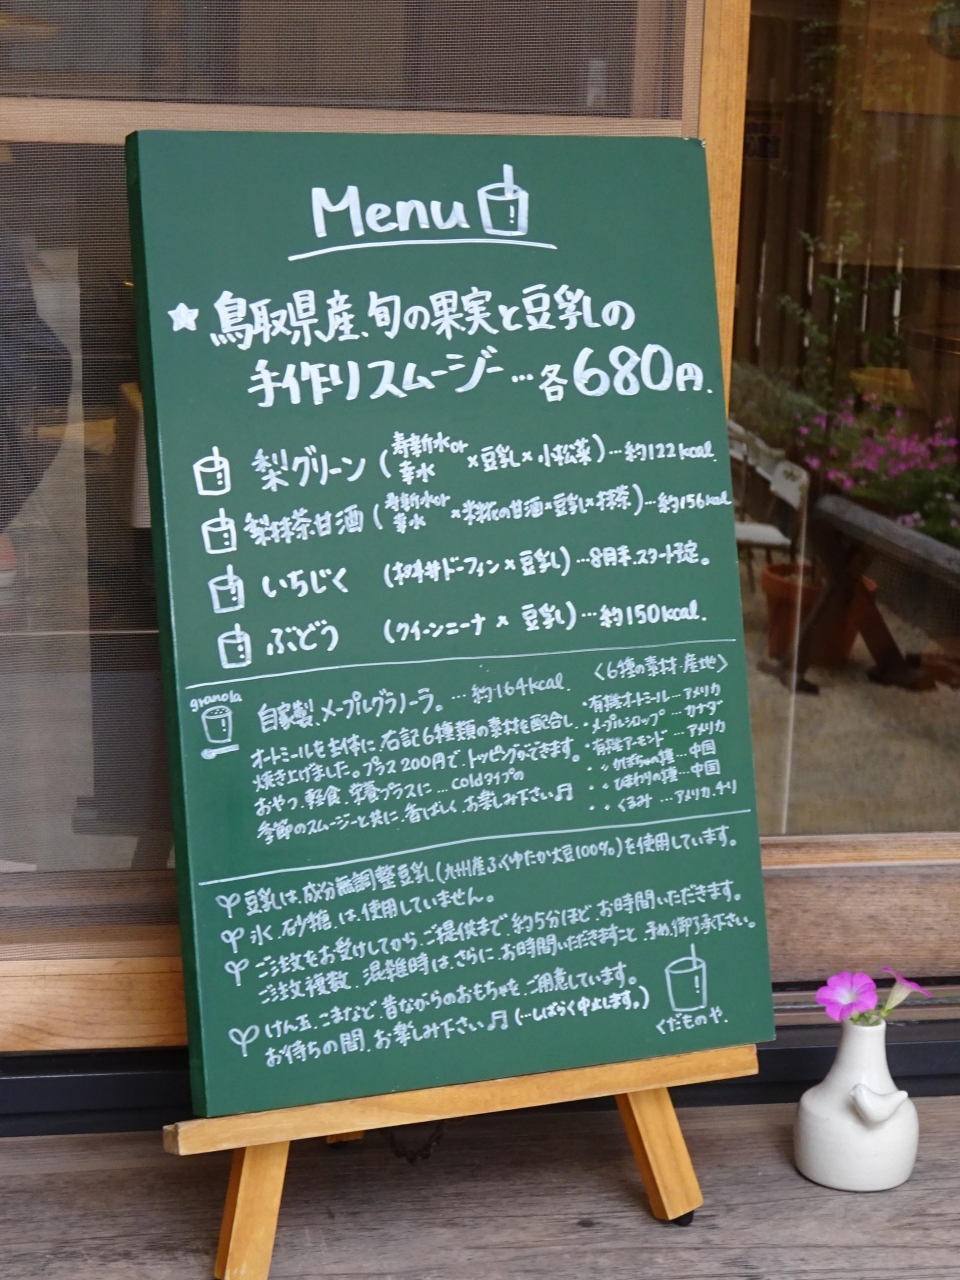 Menu
★鳥取県産、旬の果実と豆乳の
手作りスムージー…各680円.
梨グリーン (寿新水or幸水×豆乳×小松菜)…約122kcal.
梨抹茶甘酒 (寿新水or幸水×米糀の甘酒×豆乳×抹茶)…約156kcal
いちじく (桝井ドーフィン×豆乳)…8月末.スタート予定。
ぶどう (クイーンニーナ×豆乳)…約150kcal.
granola
自家製.メープルグラノーラ。…約164kcal.
オートミールを主体に、右記6種類の素材を配合し.
焼き上げました。プラス200円で、トッピングができます。
おやつ.軽食.栄養プラスに…coldタイプの
季節のスムージーと共に、香ばしく.お楽しみ下さい♬
〈6種の素材.産地〉
・有機オートミール…アメリカ
・メープルシロップ…カナダ
・有機アーモンド…アメリカ
・〃かぼちゃの種…中国
・〃ひまわりの種…中国
・〃くるみ…アメリカ.チリ
豆乳は、成分無調整豆乳(九州産ふくゆたか大豆100%)を使用しています。
氷、砂糖、は、使用していません。
ご注文をお受けしてから、ご提供まで、約5分ほど、お時間いただきます。
ご注文複数、混雑時は、さらに、お時間いただきますこと、予め、御了承下さい。
けん玉、こまなど、昔ながらのおもちゃを、ご用意しています。
お待ちの間、お楽しみ下さい♬(…しばらく中止します。)
くだものや.